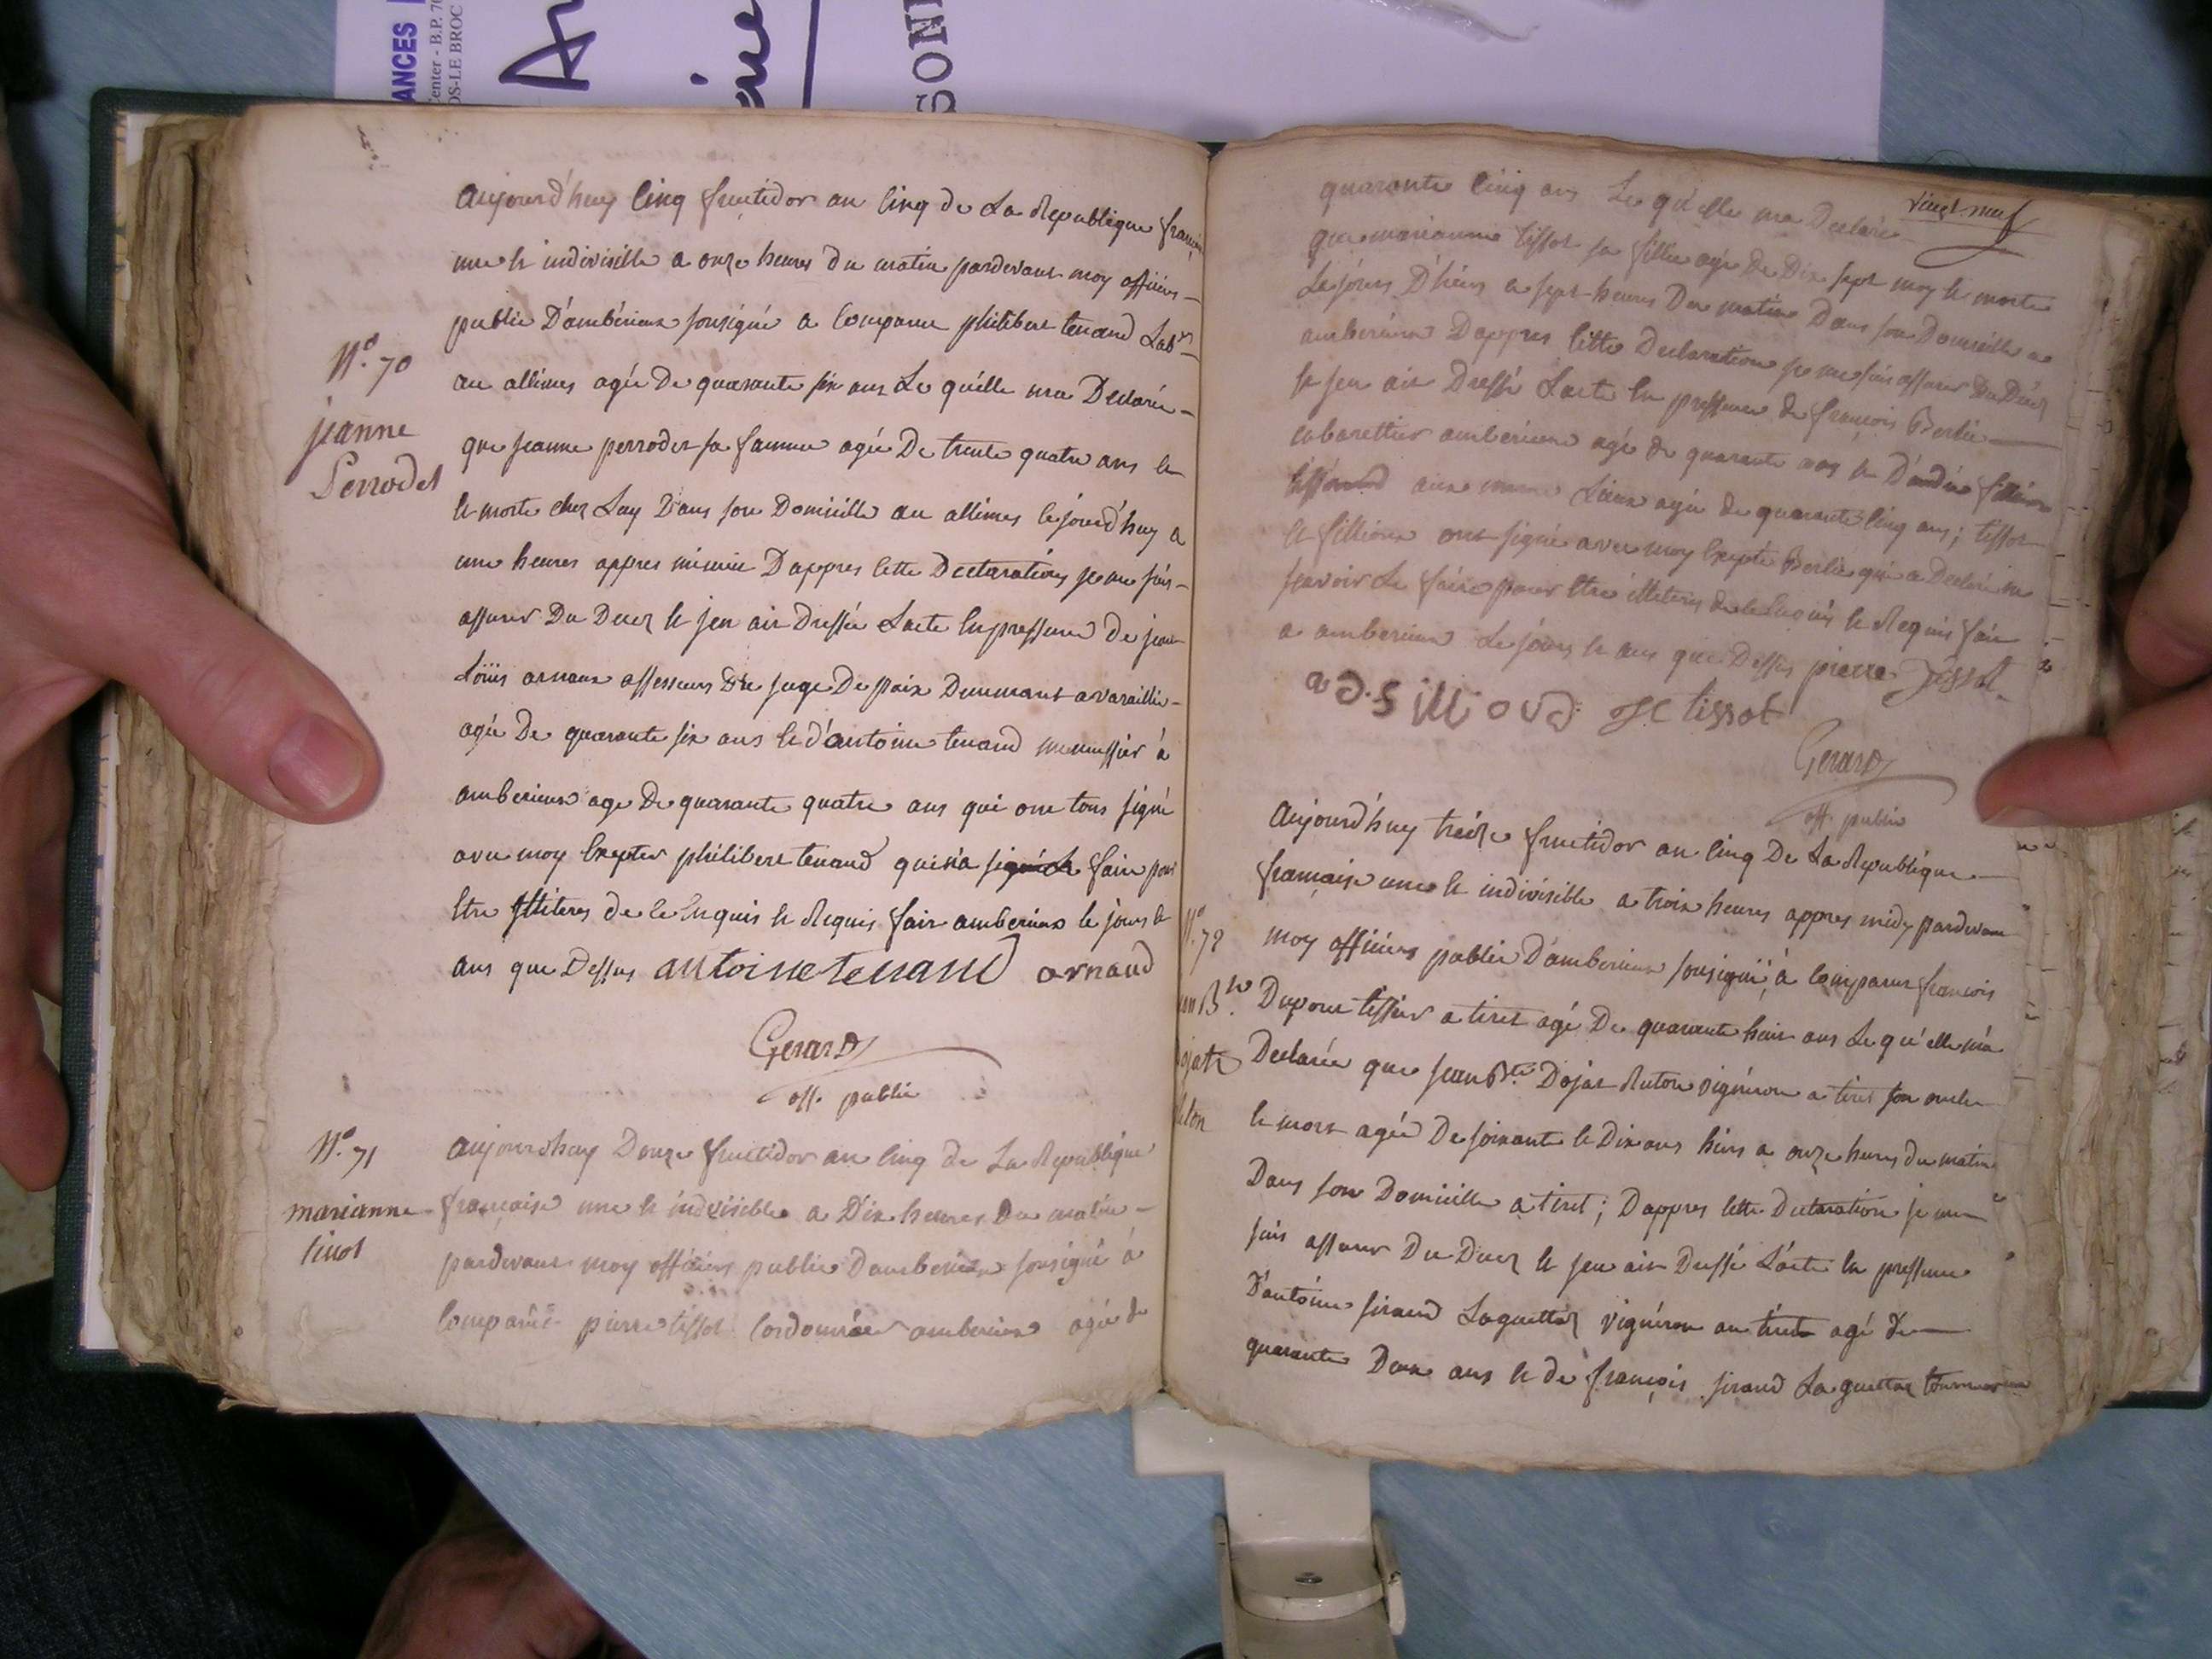 ANCES
Center - B.P. 70
OS-LE BROC
SONN
aujourd'huy Cinq fructidor an Cinq de La Republique française
une et indivisible a onze heures du matin pardevant moy officiers
public D'ambérieux sousigné a Comparu philibert tenand Labr
au allimes agée De quarante six ans Le quelle ma Declarée
que jeanne perrodet sa famme agée De trente quatre ans
et morte chez Luy Dans son Domicille au allimes cejourd'huy a
une heures appres Dappres Cette Declarations je me suis
assurer Du Decez et jen ait Dressée Lacte En pressance De jean
Loüis arnaux assesseurs Du juge De paix Demurant avaraillie
agée De quarante six ans et d'antoine tenand menussier à
amberieux age De quarante quatre ans qui ont tous signé
avec moy Excepter philibert tenand qui n'a faire pour
Etre Illiteres de ce Enquis et Requis fait amberieux le jours et
ans que Dessus antoine tenand arnaud
Gerard
off. public
N.° 70
jeanne
Perrodet
N.° 71
marianne
tissot
aujourdhuy Douze fructidor an Cinq de La Republique
française une et indivisible a Dix heures Du matin
pardevant moy officiers public Damberieux sousigné à
Comparûe pierre tissot Cordonnier amberieux agée de
vingt neuf
quarante Cinq ans Le qu'elle ma Declaré
que marianne tissot sa fillie agée de Dix sept moy et morte
Lejours D'hiers a sept heures Du matin Dans son Domicille a
amberieux Dappres Cette Declaration je me suis assurer Du Decez
et jen ait Dressé Lacte En pressance de françois Berlie
cabarettier amberieux agé de quarante ans et D'andré fillioux
tisserand aux meme Lieux agée de quarante Cinq ans; tissot
et fillioux ont signé avec moy Excepté Berlie qui a Declaré ne
scavoir Le faire pour Etre illiteres de ce Enquis et Requis fait
a amberieux Le jours et ans que Dessus pierre Tissot
a d. fillioud J C tissot
Gerard
off. public
N.° 72
Bte
Aujourd'huy treize fructidor an Cinq De La Republique
française une et indivisible a trois heures appres midy pardevant
moy officiers public D'amberieux sousigné, à Comparut françois
Dupont tissier a tiret agé De quarante huit ans Le qu'elle m'a
Declarée que jean Bte Dojat Ruton vigniron a tiret son oncle
et mort agée De soixante et Dix ans hiers a onze heures du matin
Dans son Domicille a tiret; Dappres Cette Declaration je me
suis assurer Du Decez et jen ait Dressé Lacte En pressance
D'antoine sirand Laguettaz vigniron au tiret agé de
quarante Deux ans et de françois sirand La guettaz